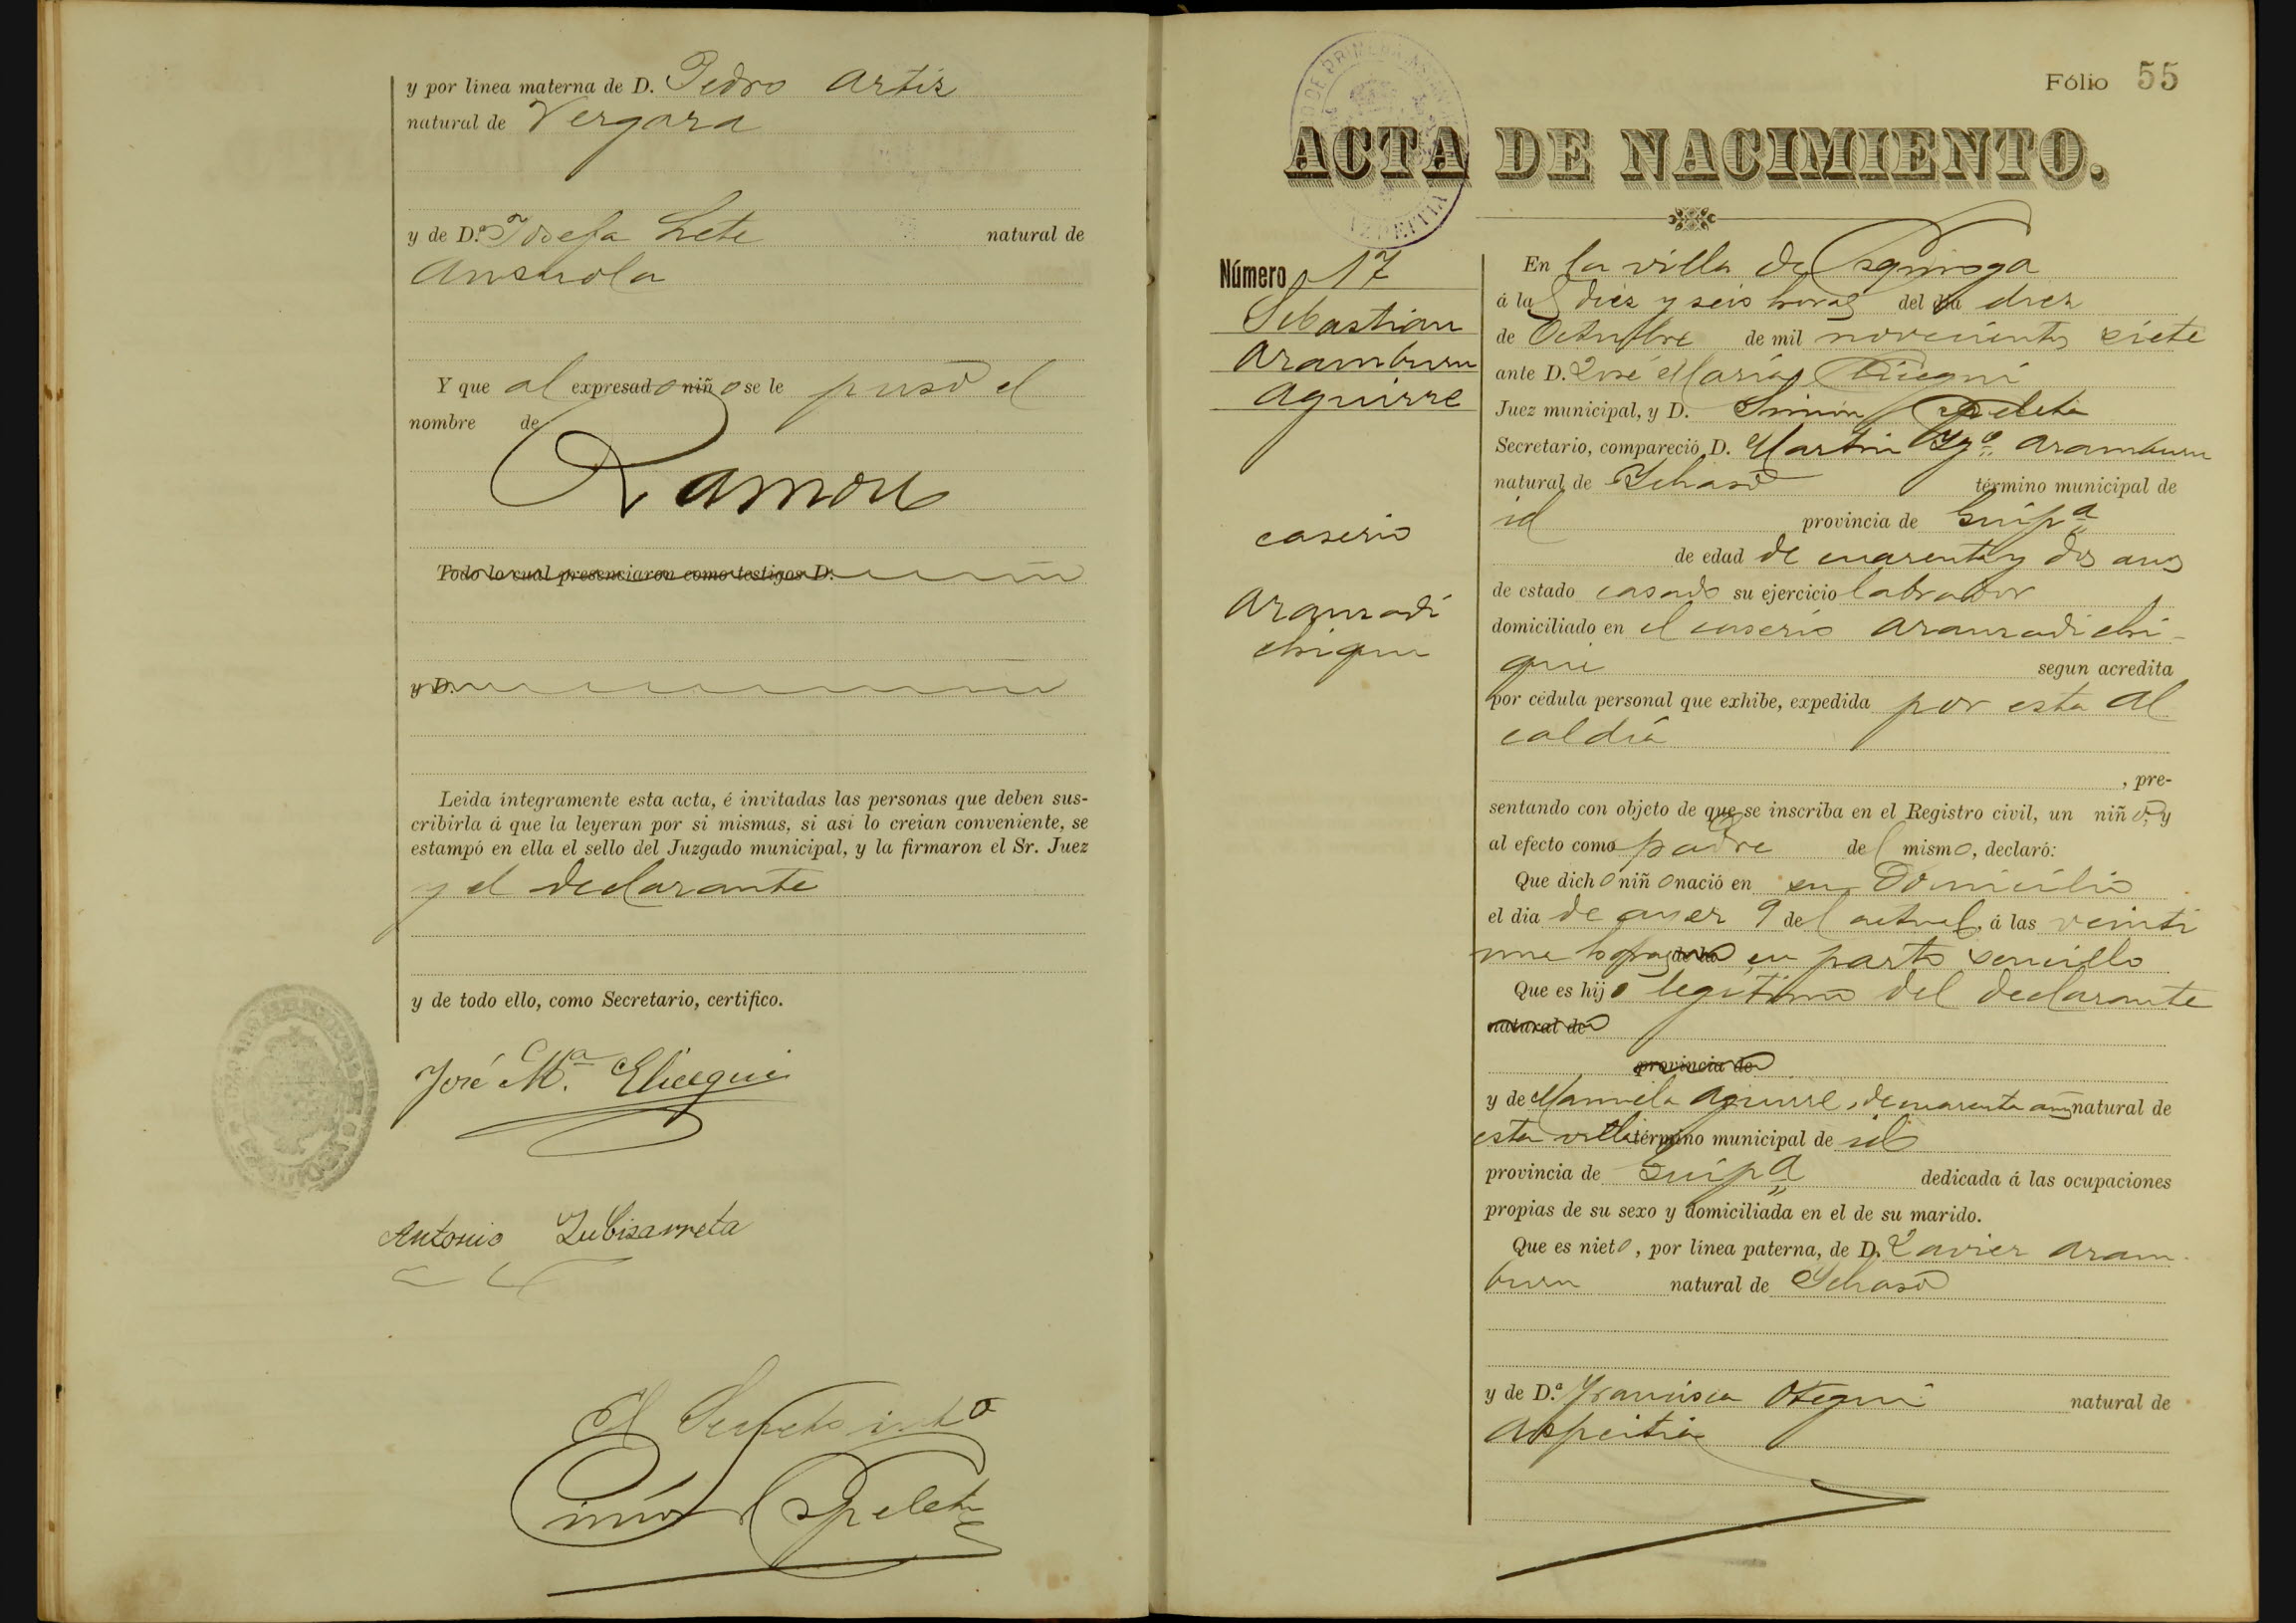 y por linea materna de D. Pedro Artiz
natural de Vergara
y de D.ª Josefa Lete natural de
Ansuola
Y que al expresado niño se le puso el
nombre de
Ramon
Todo lo cual presenciaron como testigos D.
y D.
Leida integramente esta acta, é invitadas las personas que deben sus-
cribirla á que la leyeran por si mismas, si asi lo creian conveniente, se
estampó en ella el sello del Juzgado municipal, y la firmaron el Sr. Juez
y el declarante
y de todo ello, como Secretario, certifico.
José M.ª Elicegui
Antonio Zubizarreta
El Secretario
Simón Espeleta
Fólio 55
ACTA DE NACIMIENTO.
Número 17
Sebastian
Aramburu
Aguirre
caserio
Aranzadi
chiqui
En la villa de Regil
á las diez y seis horas del dia diez
de Octubre de mil novecientos siete
ante D. José María Elicegui
Juez municipal, y D. Simón Espeleta
Secretario, compareció D. Martin Ygº Aramburu
natural de Ichaso término municipal de
id provincia de Guipª
de edad de cuarenta y dos años
de estado casado su ejercicio labrador
domiciliado en el caserio Aranzadi chi-
qui segun acredita
por cédula personal que exhibe, expedida por esta Al
caldía
, pre-
sentando con objeto de que se inscriba en el Registro civil, un niño, y
al efecto como padre del mismo, declaró:
Que dicho niño nació en su domicilio
el dia de ayer 9 del actual, á las veinti
une horas de la en parto sencillo
Que es hijo legitimo del declarante
natural de
provincia de
y de Manuela Aguirre, de cuarenta años natural de
esta villa término municipal de id
provincia de Guipª dedicada á las ocupaciones
propias de su sexo y domiciliada en el de su marido.
Que es nieto, por linea paterna, de D. Xavier Aram
buru natural de Ichaso
y de D.ª Francisca Otegui natural de
Azpeitia